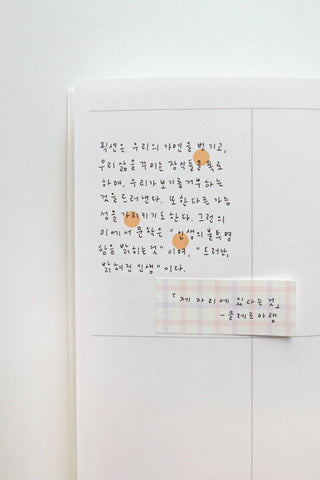 픽션은 우리의 가면을 벗기고,
우리 삶을 꾸미는 장식들을 폭로
하며, 우리가 보기를 거부하는
것을 드러낸다. 또한 다른 가능
성을 가리키기도 한다. 그런 의
미에서 문학은 "인생의 불투명
함을 밝히는 것" 이며, "드러난,
밝혀진 인생" 이다.
「제자리에 있다는 것」
- 클레르 마랭